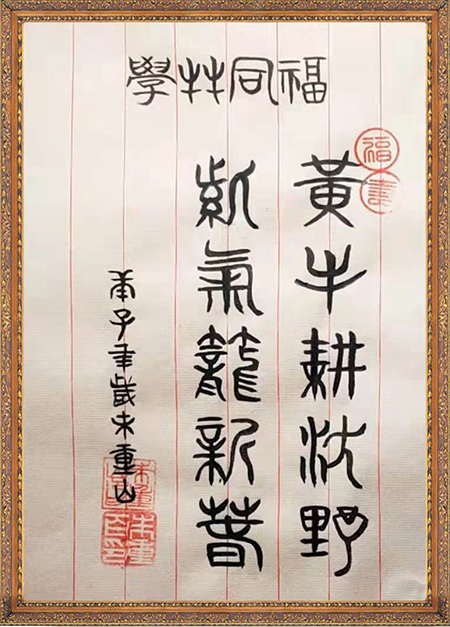 福同學
黃牛耕沃野
紫氣籠新春
庚子年歲末重山
福